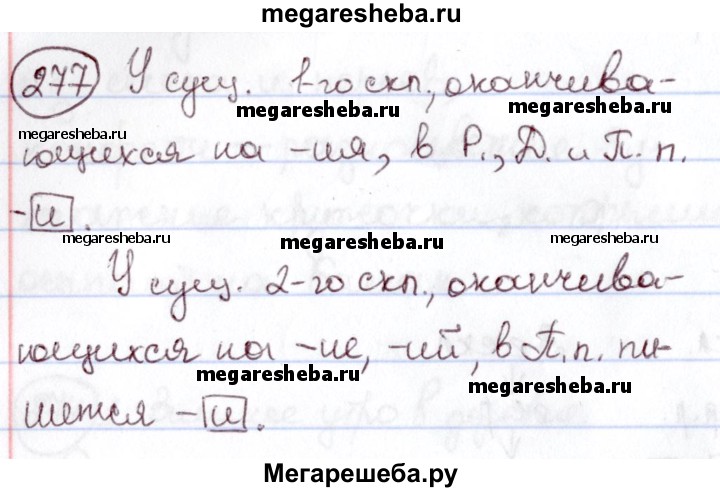 megaresheba.ru
277 У сущ. 1-го скл., оканчива-
megaresheba.ru megaresheba.ru
megaresheba.ru
ющихся на -ия, в Р., Д. и П. п.
-и.
megaresheba.ru megaresheba.ru megaresheba.ru
У сущ. 2-го скл., оканчива-
ющихся на -ие, -ий, в П. п. пи-
megaresheba.ru megaresheba.ru
шется -и.
Мегарешеба.ру